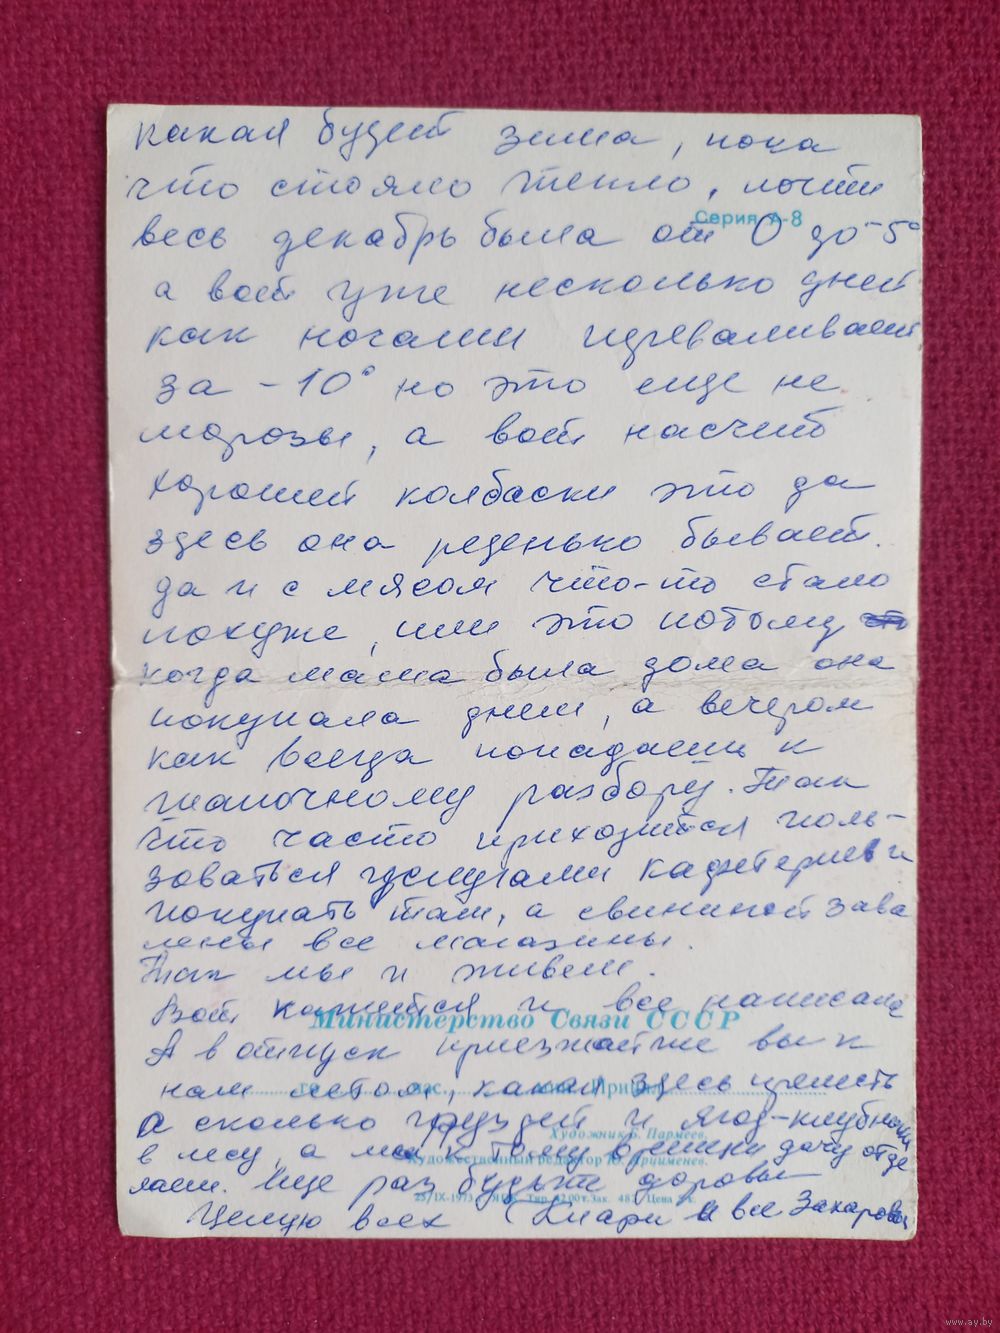 какая будет зима, пока
что стояло тепло, почти
Серия А-8
весь декабрь была от 0 до -5°
а вот уже несколько дней
как ночами переваливает
за -10° но это еще не
морозы, а вот насчет
хорошей колбаски это да
здесь она реденько бывает.
да и с мясом что-то стало
похуже, или это потому
когда мама была дома она
покупала днем, а вечером
как всегда попадаешь к
шапочному разбору. Так
что часто приходится поль-
зоваться услугами кафетериев и
покупать там, а свининой зава
лены все магазины.
Так мы и живем.
Вот кажется и все написала
Министерство Связи СССР
А в отпуск приезжайте вы к
нам летом, какая здесь прелесть
а сколько груздей и ягод-клубники
Художник Б. Пармеев.
в лесу, а мы к тому времени дачу отде
Художественный редактор Ю.
лаем. Еще раз будьте здоровы
25/IX-1973 Зак. Цена
Целую всех и все Захаровы
www.ay.by